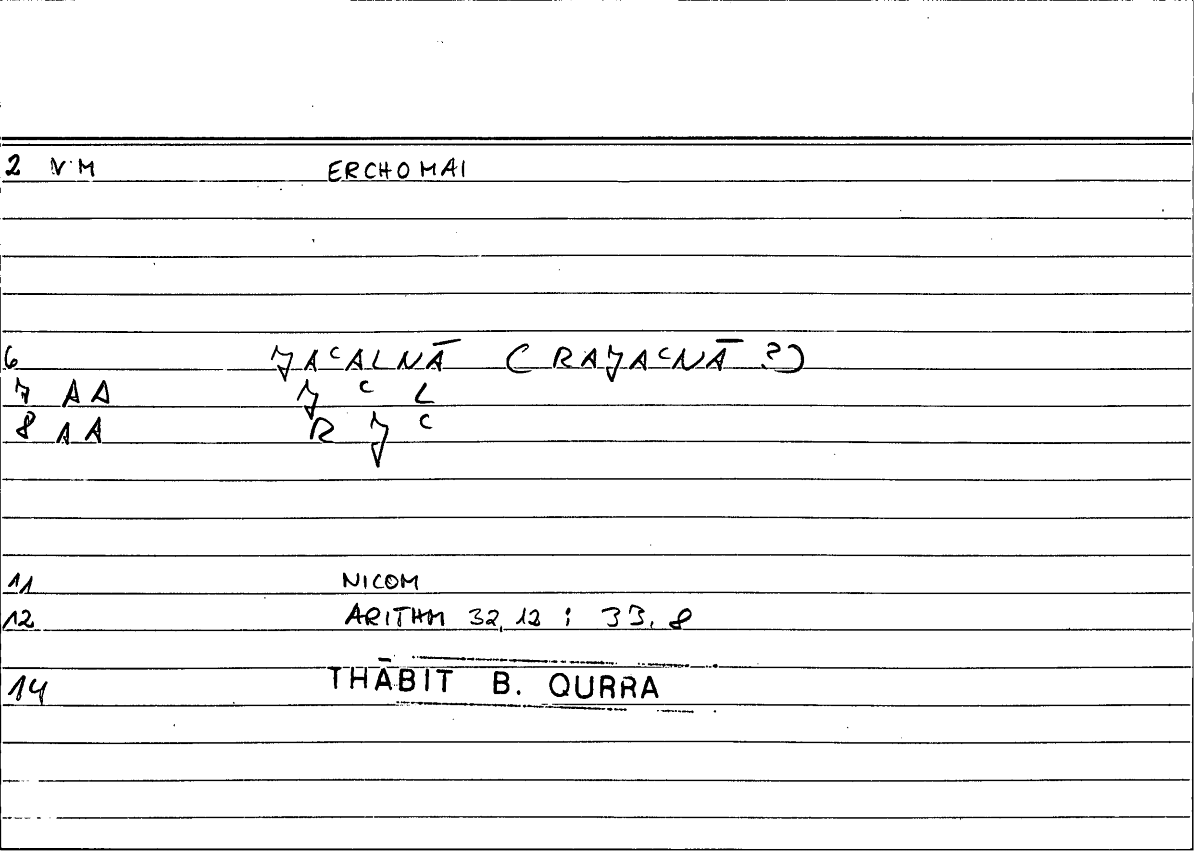 2 VM ERCHOMAI
6 JAᶜALNĀ (RAJAᶜNĀ ?)
7 AA J ᶜ L
8 AA R J ᶜ
11 NICOM
12 ARITHM 32,12 ; 33,8
14 THĀBIT B. QURRA